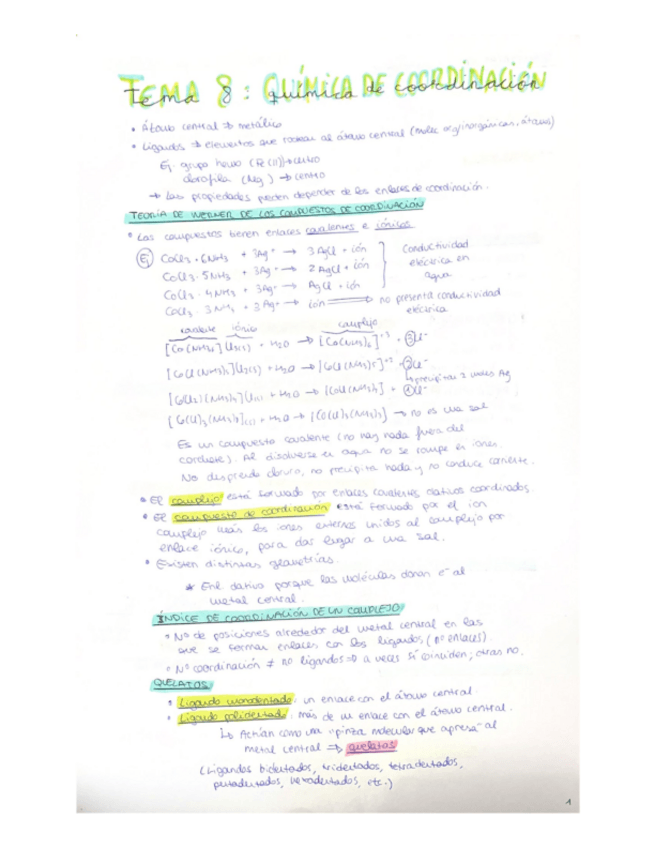 TEMA 8: QUÍMICA DE COORDINACIÓN
Tema 8: química de coordinación
• Átomo central ⇒ metálico
• Ligandos ⇒ elementos que rodean al átomo central (molec org/inorgánicas, átomos)
Ej. grupo hemo (Fe (II)) → centro
clorofila (Mg) → centro
→ Las propiedades pueden depender de los enlaces de coordinación.
TEORÍA DE WERNER DE LOS COMPUESTOS DE COORDINACIÓN
• Los compuestos tienen enlaces covalentes e iónicos
Ej CoCl3 · 6NH3 + 3Ag+ → 3 AgCl + ión
CoCl3 · 5NH3 + 3Ag+ → 2 AgCl + ión
CoCl3 · 4NH3 + 3Ag+ → AgCl + ión
Conductividad
eléctrica en
agua
CoCl3 · 3NH3 + 3Ag+ → ión
no presenta conductividad
eléctrica
covalente iónico complejo
+ H2O → [Co(NH3)6]+3 + 3Cl-
+ H2O → +2 + 2Cl-
precipitan 2 moles Ag
+ H2O → + 1Cl-
+ H2O → → no es una sal
Es un compuesto covalente (no hay nada fuera del
corchete). Al disolverse en agua no se rompe en iones.
No desprende cloruro, no precipita nada y no conduce corriente.
• El complejo está formado por enlaces covalentes dativos coordinados
• El compuesto de coordinación está formado por el ion
complejo más los iones externos unidos al complejo por
enlace iónico, para dar lugar a una sal.
• Existen distintas geometrías.
* Enl dativo porque las moléculas donan e- al
metal central.
ÍNDICE DE COORDINACIÓN DE UN COMPLEJO
• Nº de posiciones alrededor del metal central en las
que se forman enlaces con los ligandos (nº enlaces).
• Nº coordinación ≠ nº ligandos ⇒ a veces sí coinciden; otras no.
QUELATOS
• Ligando monodentado: un enlace con el átomo central
• Ligando polidentado: más de un enlace con el átomo central.
↳ Actúan como una "pinza molecular que apresa" al
metal central ⇒ quelatos
(Ligandos bidentados, tridentados, tetradentados,
pentadentados, hexadentados, etc.)
1